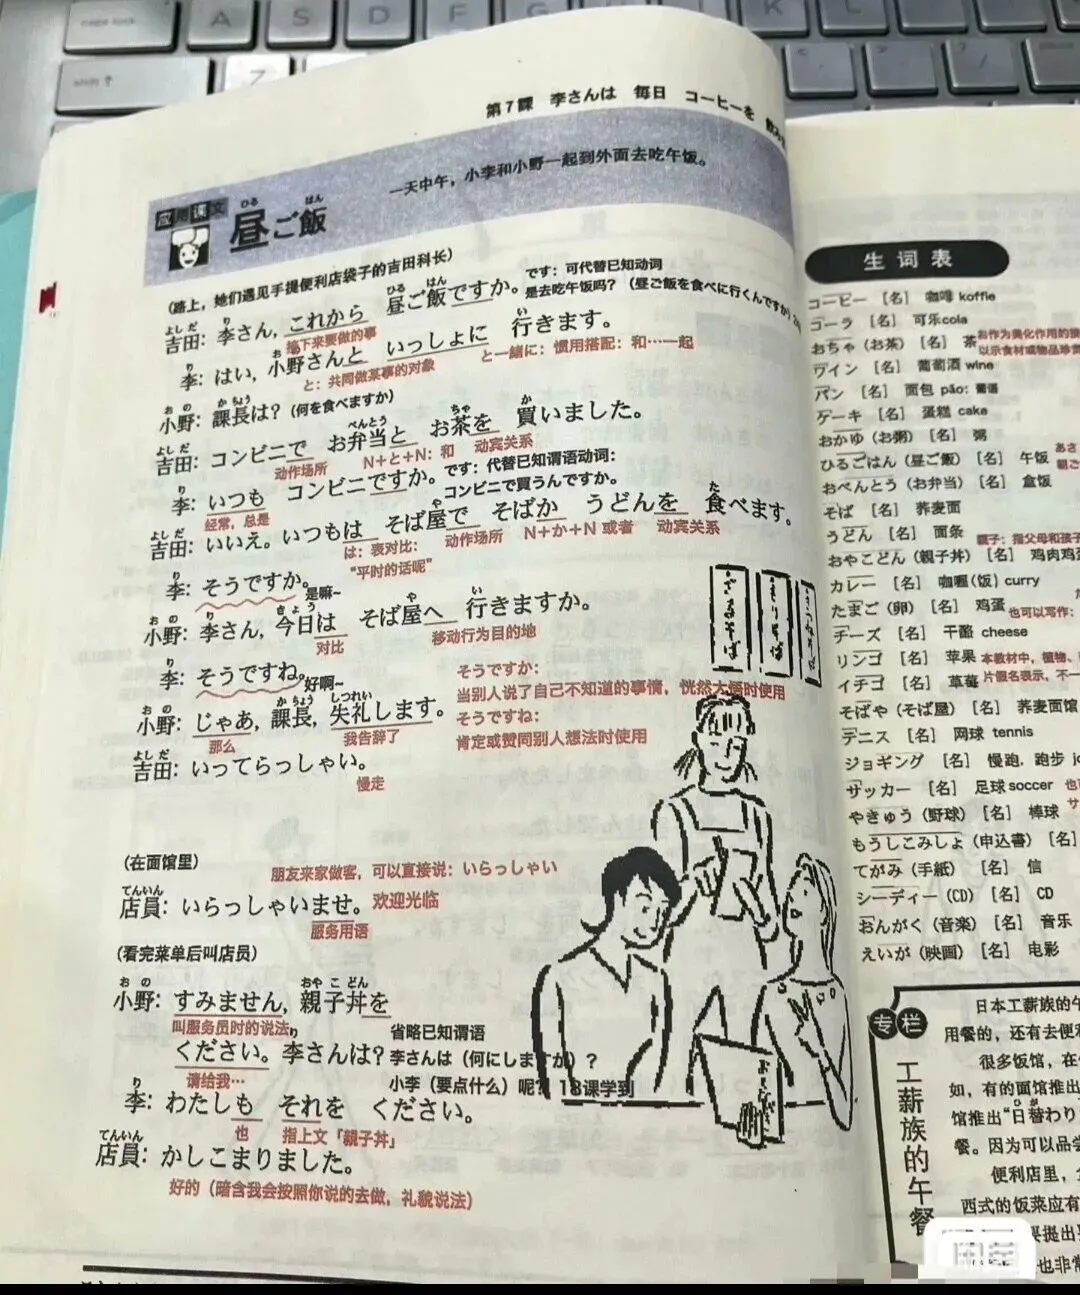 第7課 李さんは 毎日 コーヒーを
一天中午，小李和小野一起到外面去吃午饭。
应用课文
ひる はん
昼ご飯
(路上，她们遇见手提便利店袋子的吉田科长)
よしだ り ひる はん
吉田: 李さん, これから 昼ご飯ですか。
接下来要做的事
です: 可代替已知动词
是去吃午饭吗？ (昼ご飯を食べに行くんですか)
り お の い
李: はい, 小野さんと いっしょに 行きます。
と: 共同做某事的对象
と一緒に: 惯用搭配: 和…一起
お の か ちょう
小野: 課長は? (何を食べますか)
よし だ べんとう ちゃ か
吉田: コンビニで お弁当と お茶を 買いました。
动作场所 N+と+N: 和 动宾关系
り
李: いつも コンビニですか。
经常，总是
です: 代替已知谓语动词:
コンビニで買うんですか。
よし だ や た
吉田: いいえ。いつもは そば屋で そばか うどんを 食べます。
は: 表对比: 动作场所 N+か+N 或者 动宾关系
“平时的话呢”
り
李: そうですか。
是嘛~
お の り きょう や い
小野: 李さん, 今日は そば屋へ 行きますか。
对比 移动行为目的地
り
李: そうですね。
好啊~
そうですか:
当别人说了自己不知道的事情，恍然大悟时使用
お の か ちょう しつれい
小野: じゃあ, 課長, 失礼します。
那么 我告辞了
そうですね:
肯定或赞同别人想法时使用
よし だ
吉田: いってらっしゃい。
慢走
(在面馆里)
朋友来家做客，可以直接说: いらっしゃい
てんいん
店員: いらっしゃいませ。
欢迎光临
服务用语
(看完菜单后叫店员)
お の おや こ どん
小野: すみません, 親子丼を
叫服务员时的说法
り
ください。李さんは?
请给我…
省略已知谓语
李さんは (何にしますか) ?
小李 (要点什么) 呢? 18课学到
り
李: わたしも それを ください。
也 指上文「親子丼」
てんいん
店員: かしこまりました。
好的 (暗含我会按照你说的去做，礼貌说法)
生词表
コーヒー [名] 咖啡 koffie
コーラ [名] 可乐cola
おちゃ (お茶) [名] 茶
お作为美化作用的接
以示食材或物品珍贵
ワイン [名] 葡萄酒 wine
パン [名] 面包 pão: 葡语
ケーキ [名] 蛋糕 cake
おかゆ (お粥) [名] 粥
ひるごはん (昼ご飯) [名] 午饭
あさ
おべんとう (お弁当) [名] 盒饭
そば [名] 荞麦面
うどん [名] 面条
親子: 指父母和孩子
おやこどん (親子丼) [名] 鸡肉鸡蛋
カレー [名] 咖喱(饭) curry
たまご (卵) [名] 鸡蛋
也可以写作:
チーズ [名] 干酪 cheese
リンゴ [名] 苹果
本教材中，植物、
イチゴ [名] 草莓
片假名表示，不一
そばや (そば屋) [名] 荞麦面馆
テニス [名] 网球 tennis
ジョギング [名] 慢跑，跑步
サッカー [名] 足球 soccer
やきゅう (野球) [名] 棒球
もうしこみしょ (申込書) [名]
てがみ (手紙) [名] 信
シーディー (CD) [名] CD
おんがく (音楽) [名] 音乐
えいが (映画) [名] 电影
专栏
工薪族的午餐
日本工薪族的午
用餐的，还有去便利
很多饭馆，在
如，有的面馆推出
馆推出“日替わり
餐。因为可以品尝
便利店里，
西式的饭菜应有
也非常